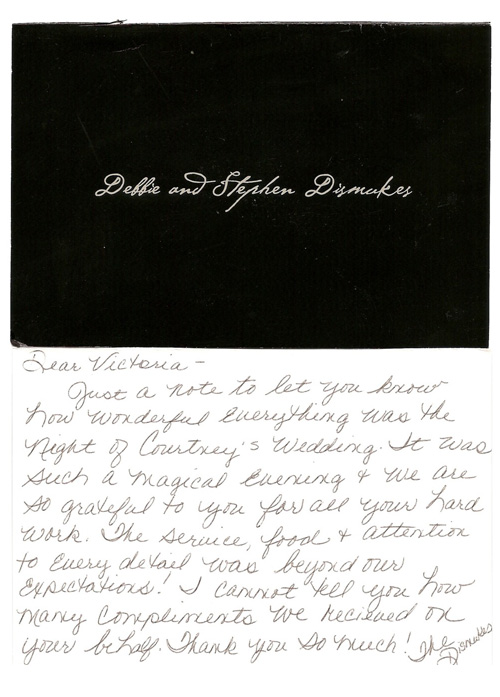 Debbie and Stephen Dismukes
Dear Victoria -
Just a note to let you know
how wonderful everything was the
night of Courtney's Wedding. It was
such a magical evening & we are
so grateful to you for all your hard
work. The service, food & attention
to every detail was beyond our
expectations! I cannot tell you how
many compliments we recieved on
your behalf. Thank you so much! The
Dismukes